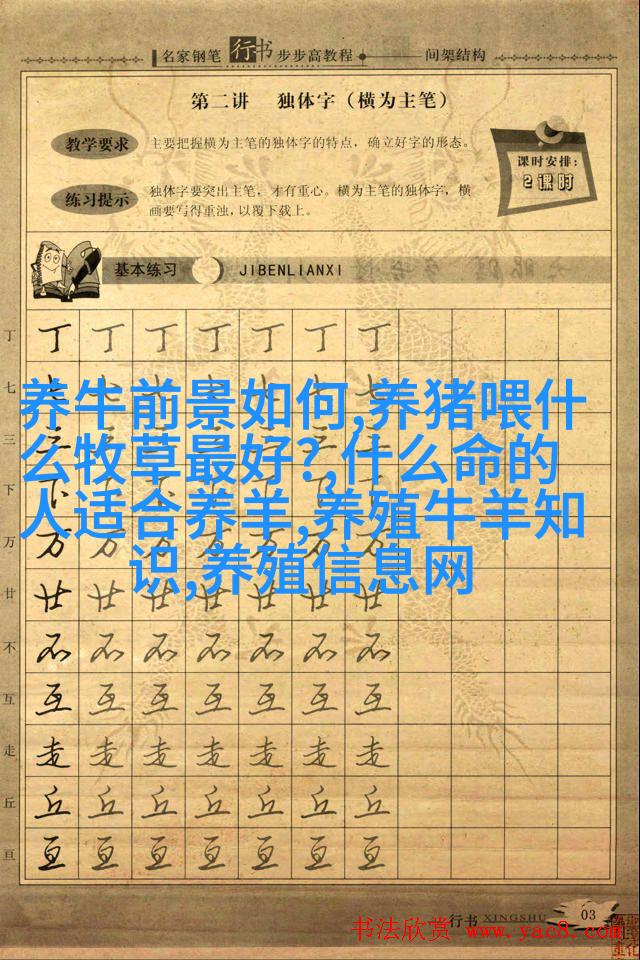 名家钢笔行书步步高教程 间架结构
第二讲 独体字（横为主笔）
教学要求
主要把握横为主笔的独体字的特点，确立好字的形态。
课时安排：
2课时
练习提示
独体字要突出主笔，才有重心。横为主笔的独体字，横
画要写得重浊，以覆下载上。
基本练习 JIBENLIANXI
丁 丁 丁 丁 丁 丁 丁 丁
七 七 七 七 七 七 七 七
养牛前景如何,养猪喂什
三 三 三 三 三 三 三 三
么牧草最好?,什么命的
下 下 下 下 下 下 下 下
人适合养羊,养殖牛羊知
万 万 万 万 万 万 万 万
识,养殖信息网
廿 廿 廿 廿 廿 廿 廿 廿
不 不 不 不 不 不 不 不
互 互 互 互 互 互 互 互
走 走 走 走 走 走 走 走
丘 丘 丘 丘 丘 丘 丘 丘
亘 亘 亘 亘 亘 亘 亘 亘
行书 XINGSHU 03
书法欣赏 www.yac8.com